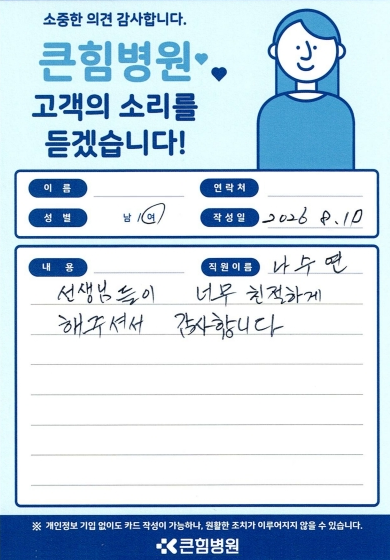 소중한 의견 감사합니다.
큰힘병원
고객의 소리를
듣겠습니다!
이 름 연락처
성 별 남 / 여 작성일 2026 8.10
내 용 직원이름 나수연
선생님들이 너무 친절하게
해주셔서 감사합니다
※ 개인정보 기입 없이도 카드 작성이 가능하나, 원활한 조치가 이루어지지 않을 수 있습니다.
큰힘병원